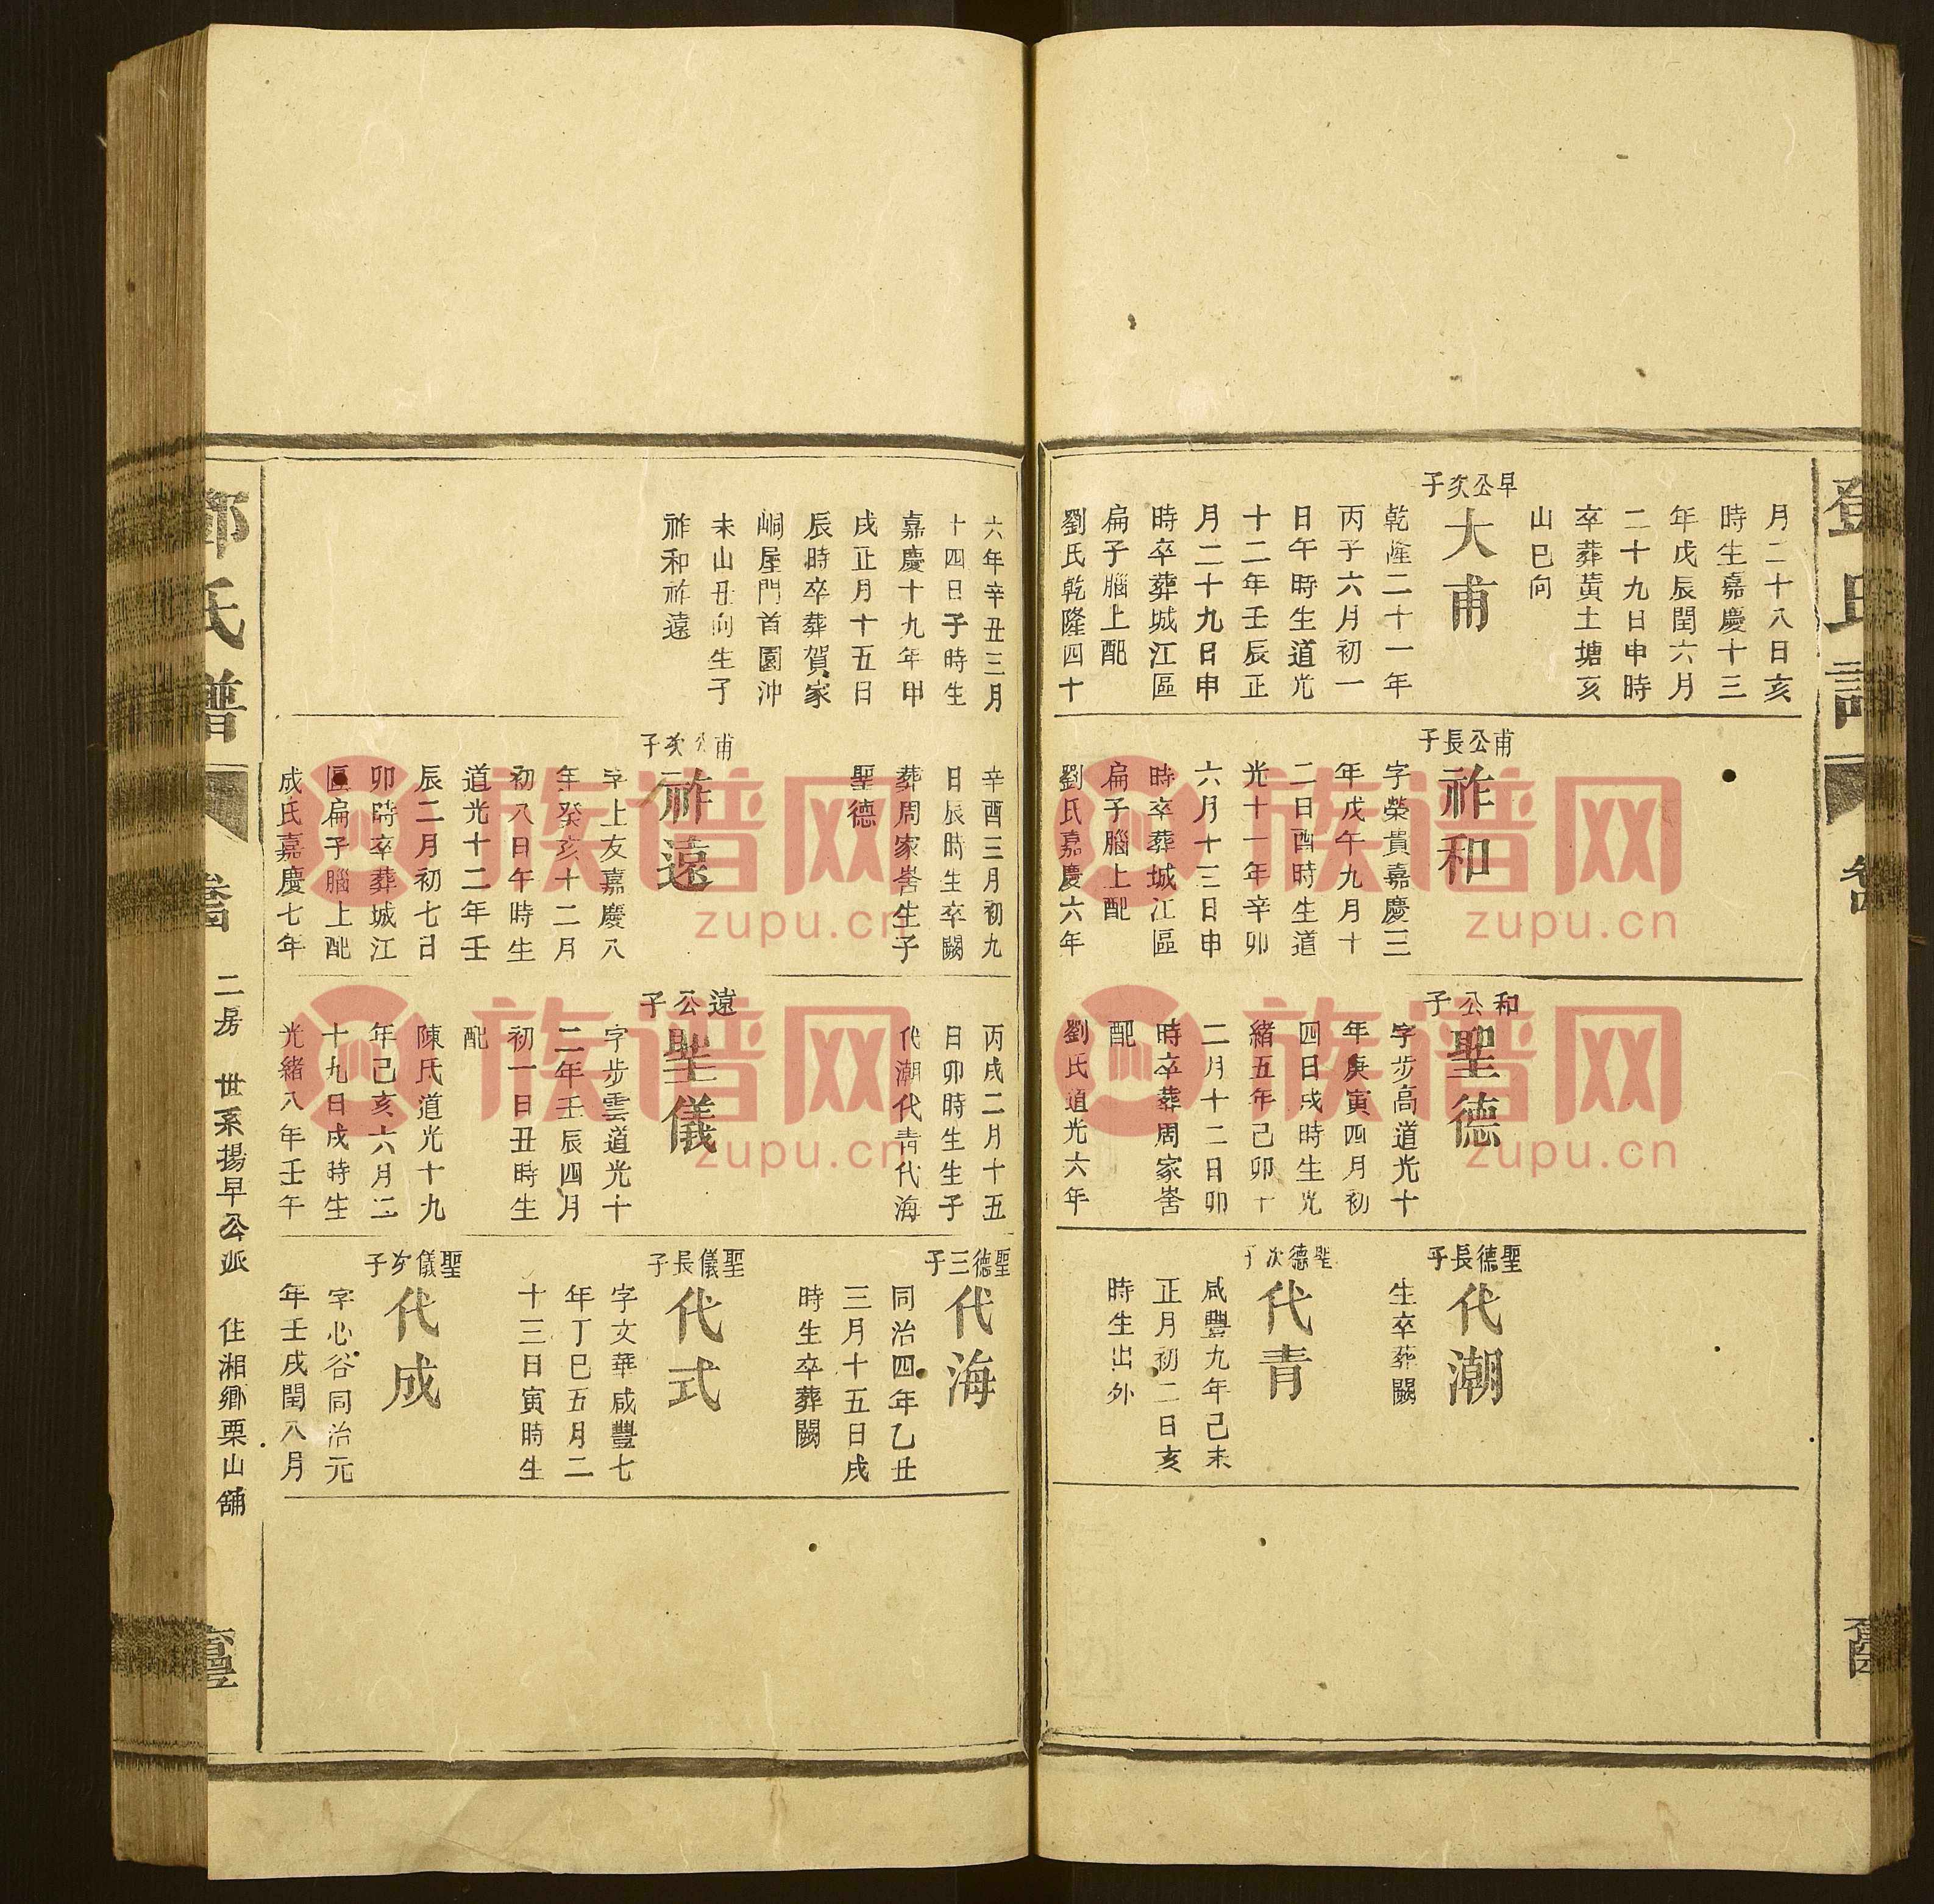 月二十八日亥
時生嘉慶十三
年戊辰閏六月
二十九日申時
卒葬黃土塘亥
山巳向
早公次子
大甫
乾隆二十一年
丙子六月初一
日午時生道光
十二年壬辰正
月二十九日申
時卒葬城江區
扁子腦上配
劉氏乾隆四十
甫公長子
祚和
字榮貴嘉慶三
年戊午九月十
二日酉時生道
光十一年辛卯
六月十三日申
時卒葬城江區
扁子腦上配
劉氏嘉慶六年
和公子
聖德
字步高道光十
年庚寅四月初
四日戌時生光
緒五年己卯十
二月十二日卯
時卒葬周家嵩
配
劉氏道光六年
聖德長子
代潮
生卒葬闕
聖德次子
代青
咸豐九年己未
正月初二日亥
時生出外
六年辛丑三月
十四日子時生
嘉慶十九年甲
戌正月十五日
辰時卒葬賀家
峒屋門首園沖
未山丑向生子
祚和祚遠
辛酉三月初九
日辰時生卒闕
葬周家嵩生子
聖德
甫公次子
祚遠
字上友嘉慶八
年癸亥十二月
初八日午時生
道光十二年壬
辰二月初七日
卯時卒葬城江
區扁子腦上配
成氏嘉慶七年
丙戌二月十五
日卯時生生子
代潮代青代海
遠公子
聖儀
字步雲道光十
二年壬辰四月
初一日丑時生
配
陳氏道光十九
年己亥六月二
十九日戌時生
光緒八年壬午
聖德三子
代海
同治四年乙丑
三月十五日戌
時生卒葬闕
聖儀長子
代式
字文華咸豐七
年丁巳五月二
十三日寅時生
聖儀次子
代成
字心谷同治元
年壬戌閏八月
鄧氏譜
二房 世系揚早公派 住湘鄉栗山舖
族谱网
zupu.cn
族谱网
zupu.cn
族谱网
zupu.cn
族谱网
zupu.cn